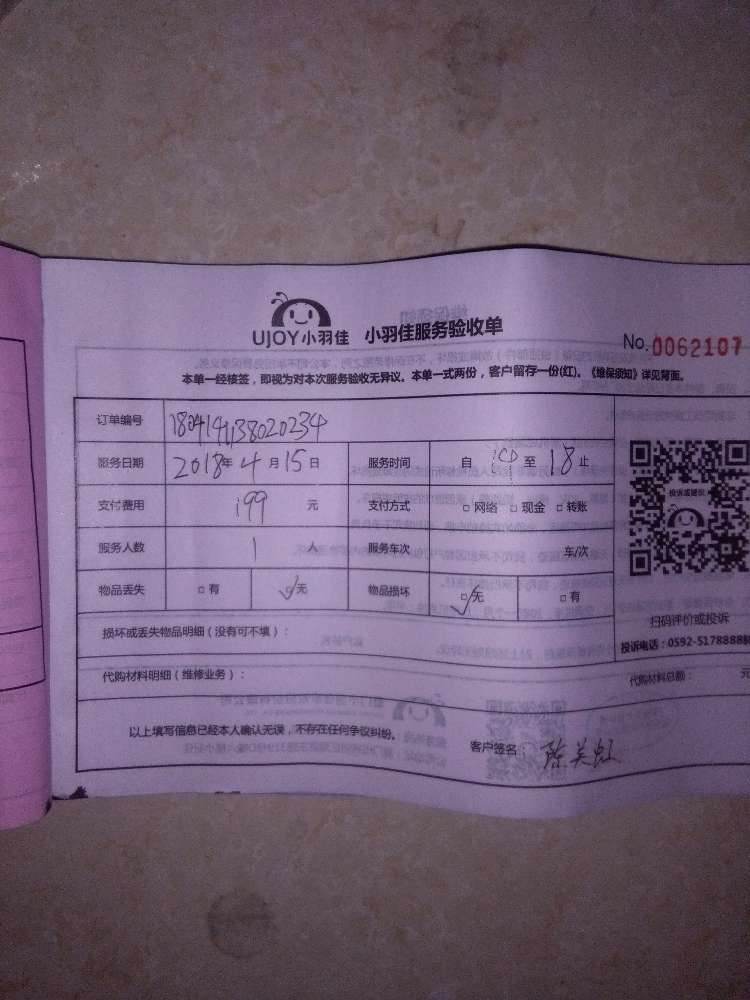 UJOY小羽佳 小羽佳服务验收单
No.0062107
本单一经核签，即视为对本次服务验收无异议。本单一式两份，客户留存一份(红)。《维保须知》详见背面。
订单编号 180414438020234
服务日期 2018年4月15日 服务时间 自 至18止
支付费用 199元 支付方式 □网络 □现金 □转账
投诉或建议
服务人数 1人 服务车次 车/次
物品丢失 □有 □无 物品损坏 □无 □有
扫码评价或投诉
损坏或丢失物品明细（没有可不填）：
投诉电话：0592-5178888
代购材料明细（维修业务）： 代购材料总额： 元
以上填写信息已经本人确认无误，不存在任何争议纠纷。 客户签名：陈美虹